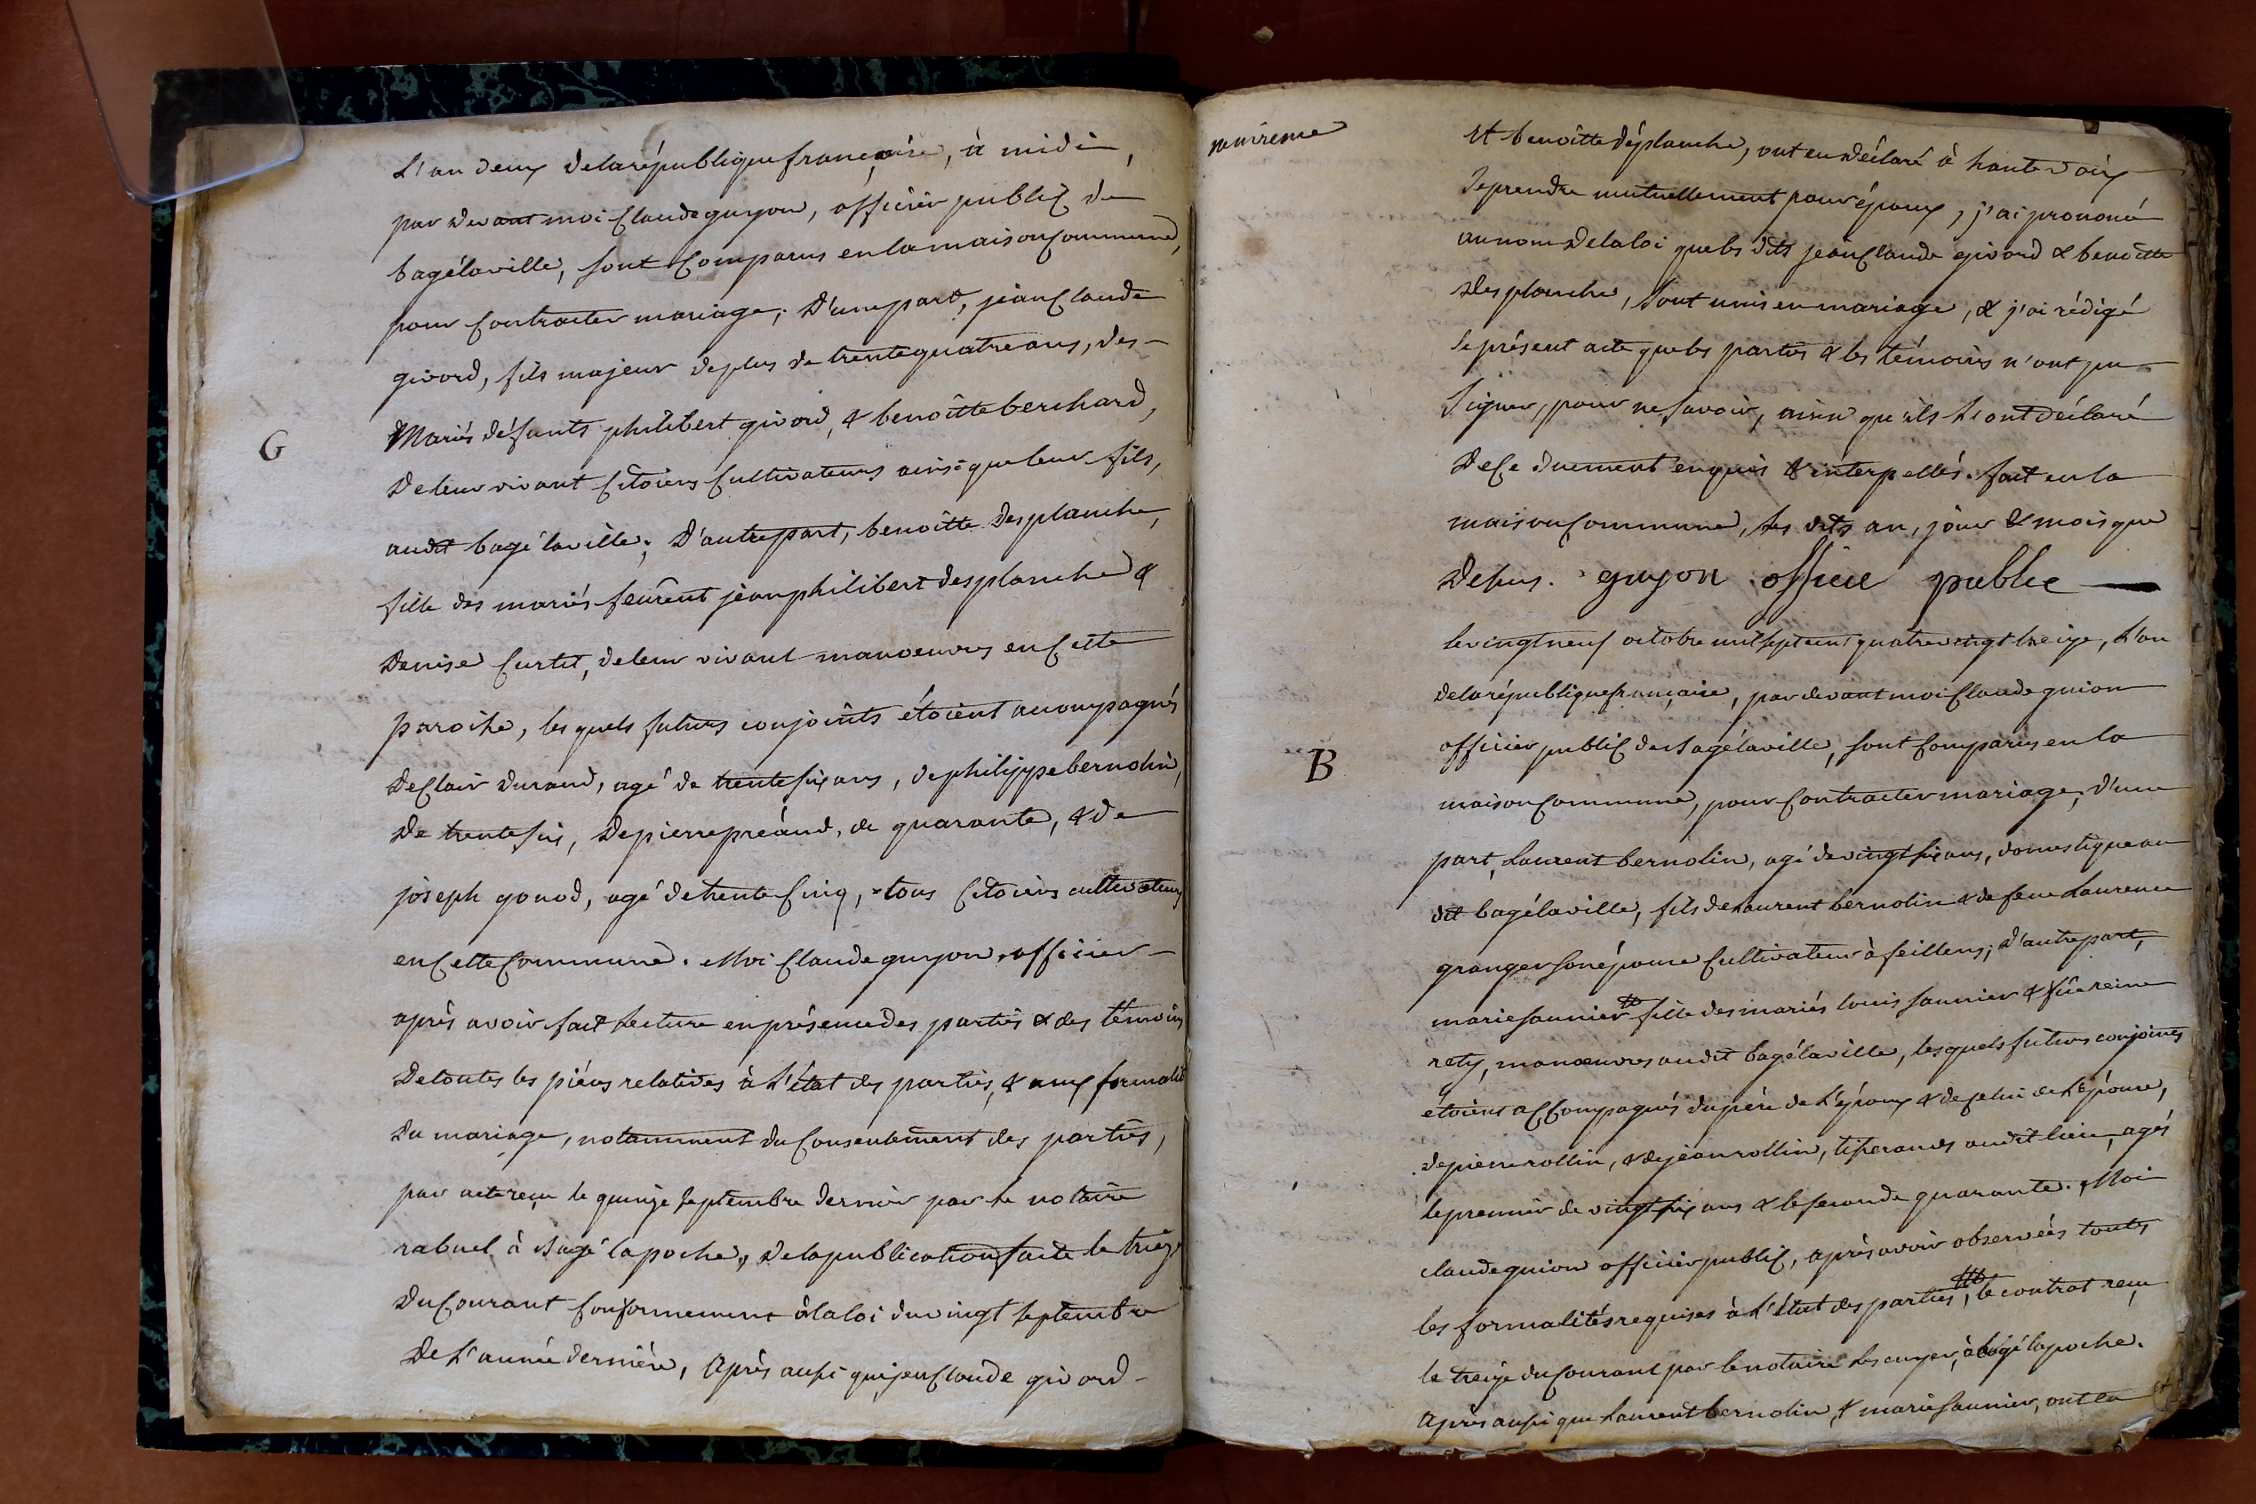 L'an deux de la république françoise, à midi,
par devant moi Claude guyon, officier public de
bagélaville, sont comparus en la maison commune,
pour contracter mariage; D'une part, jean Claude
givord, fils majeur de plus de trente quatre ans, des
Mariés défunts philibert givord, & benoitte berchard,
de leur vivant Citoiens Cultivateurs ainsi que leur fils,
G
audit bagélaville; D'autre part, benoitte desplanche,
fille des mariés feurent jean philibert desplanche &
Denise Curtit, de leur vivant manoeuvres en Cette
paroihe, lesquels futurs conjoints étoient accompagnés
de Clair Durand, agé de trente six ans, de philippe bernolin,
de trente six, de pierre préaud, de quarante, & de
joseph gonod, agé de trente Cinq, tous Citoiens cultivateurs
en Cette Commune. Moi Claude guyon, officier
après avoir fait lecture en présence des parties & des témoins
de toutes les pièces relatives à l'état des parties, & aux formalit
du mariage, notamment du Consentement des parties,
par acte reçu le quinze septembre dernier par le notaire
rabuel à Bagé la poche, de la publication faite le treize
du Courant Conformement à la loi du vingt septembre
de l'année dernière, Après aussi que jean Claude givord
Et benoitte désplanche, ont eu déclaré à haute voix
se prendre mutuellement pour époux, j'ai prononcé
au nom de la loi que les dits jean Claude givord & benoitte
desplanche, sont unis en mariage, & j'ai rédigé
le présent acte que les parties & les témoins n'ont pu
signer, pour ne savoir, ainsi qu'ils l'ont déclaré
de Ce duement enquis & interpellés. fait en la
maison Commune, les dits an, jour & mois que
dessus. guyon officier public
le vingt neuf octobre mil sept cent quatre vingt treize, l'an
de la république françaisse, par devant moi Claude guion
officier public de Bagélaville, sont Comparus en la
B
maison Commune, pour Contracter mariage, d'une
part, Laurent bernolin, agé de vingt six ans, domestique au
dit bagélaville, fils de Laurent bernolin & de feue Laurence
granger son épouse Cultivateur à feillens; D'autre part,
marie saunier fille des mariés louis saunier & füe reine
rety, manoeuvres audit bagélaville, lesquels futurs conjoints
étoient acCompagnés du père de l'époux & de Celui de l'épouse,
de pierre rollin, & de jean rollin, tisserands audit lieu, agés
le premier de vingt six ans & le second de quarante. Moi
claude guion officier public, après avoir observées toutes
les formalités requises à l'état des parties, le contrat reçu
le treize du Courant par le notaire à bagé la poche.
Après aussi que Laurent bernolin, & marie saunier, ont eu